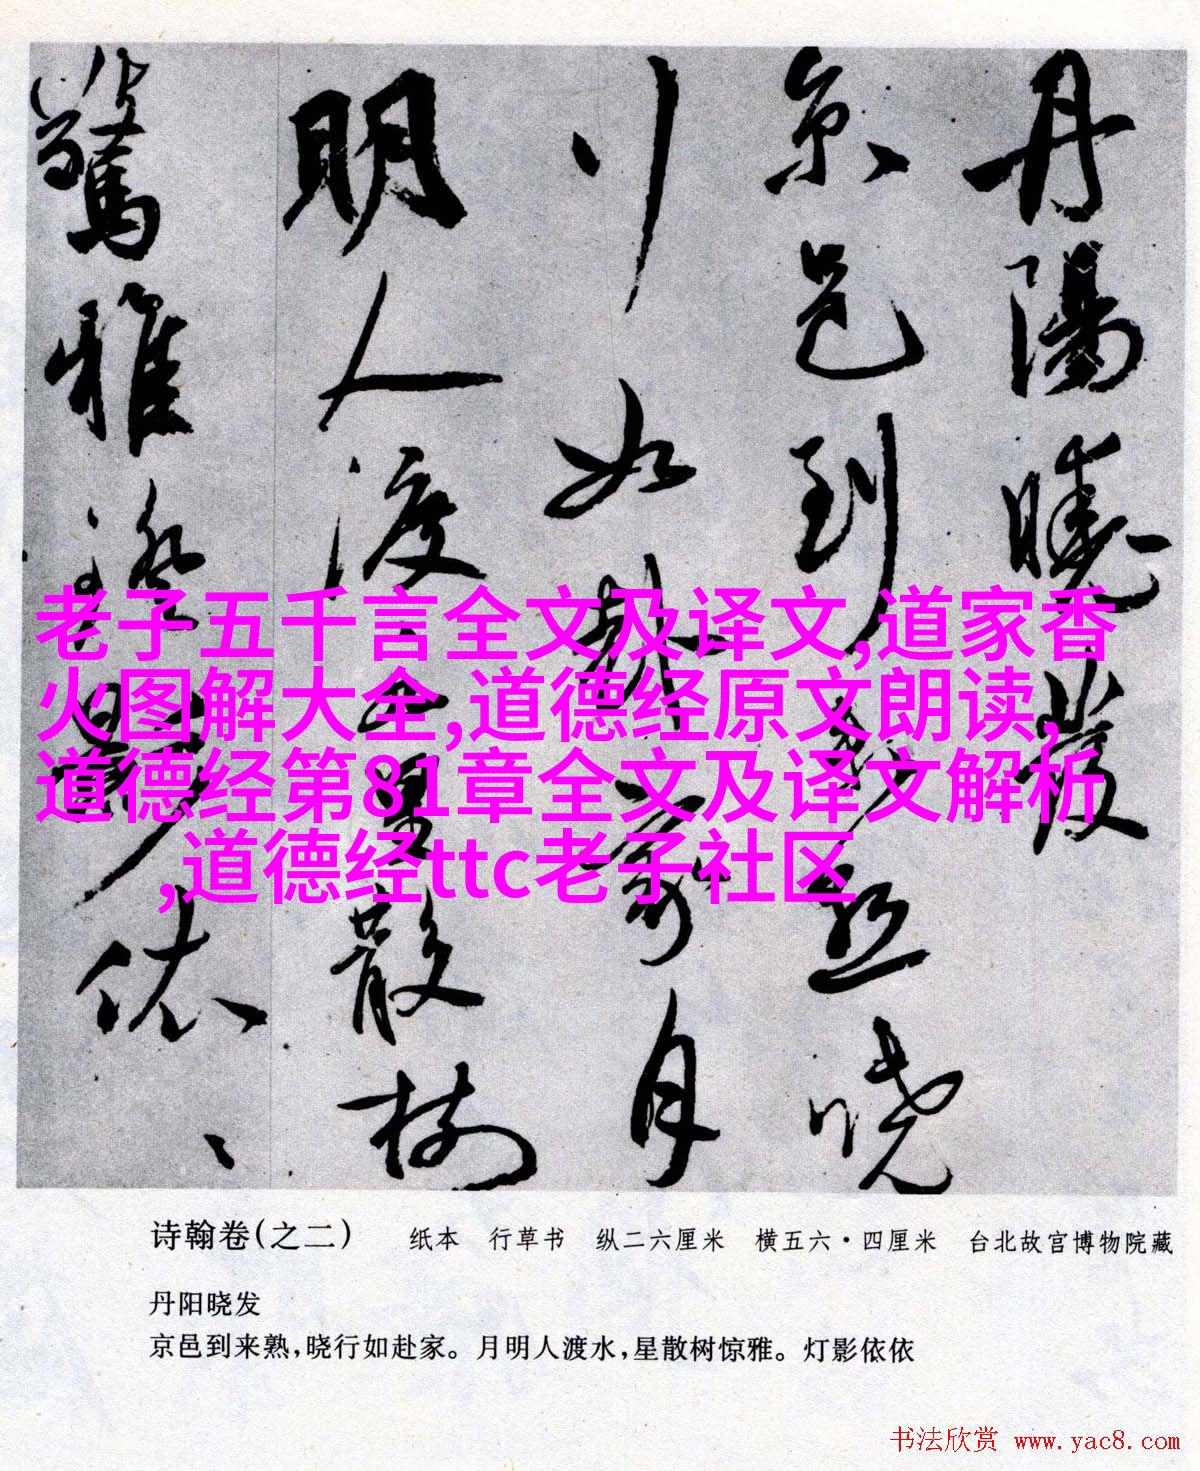 丹陽曉發
京邑到来熟曉
行如赴家月
明人渡水星散樹
驚雅燈影依依
老子五千言全文及译文,道家香
火图解大全,道德经原文朗读,
道德经第81章全文及译文解析
,道德经ttc老子社区
诗翰卷(之二) 纸本 行草书 纵二六厘米 横五六·四厘米 台北故宫博物院藏
丹阳晓发
京邑到来熟,晓行如赴家。月明人渡水,星散树惊雅。灯影依依
书法欣赏 www.yac8.com